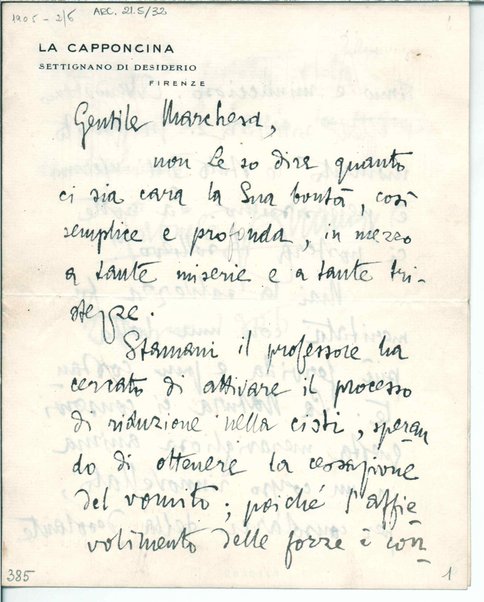 1905 - 2/6
ARC. 21.5/32
1
LA CAPPONCINA
SETTIGNANO DI DESIDERIO
FIRENZE
Gentile Marchesa,
non Le so dire quanto
ci sia cara la Sua bontà, così
semplice e profonda, in mezzo
a tante miserie e a tante tri-
stezze.
Stamani il professore ha
cercato di attivare il processo
di riduzione nella cisti, speran
do di ottenere la cessazione
del vomito; poiché l'affie
volimento delle forze è con
385
1